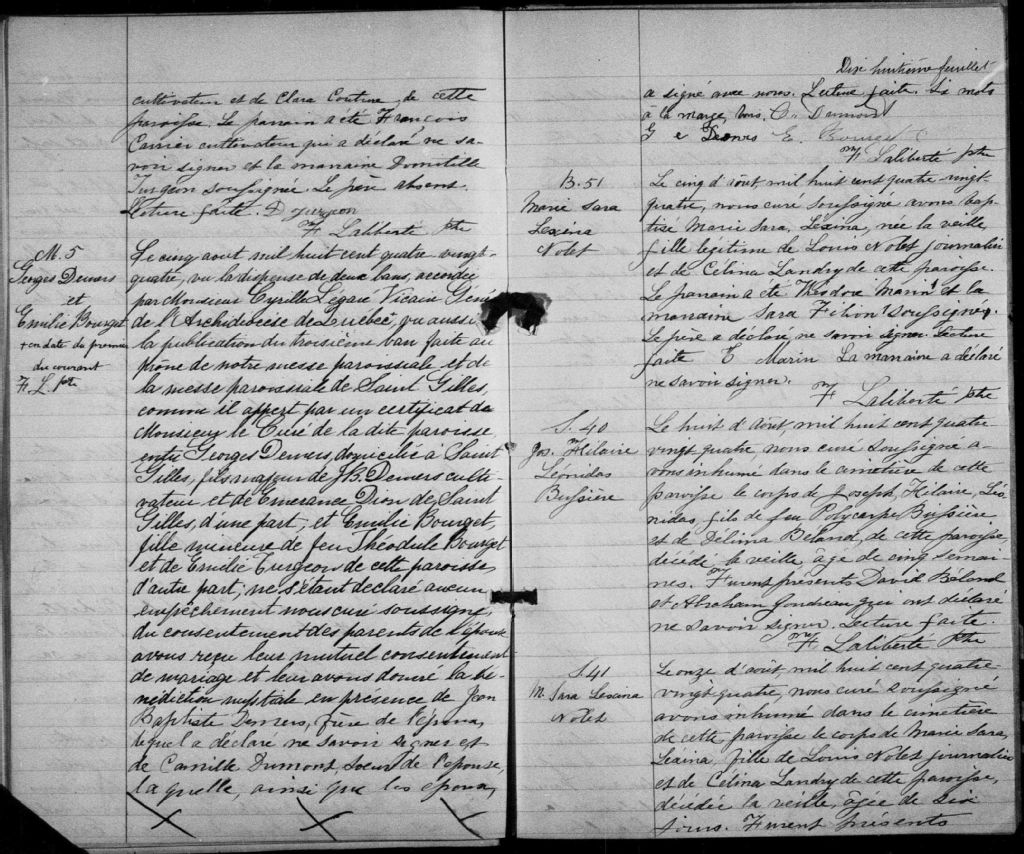 cultivateur et de Clara Couture de cette
paroisse. Le parrain a été François
Carrier cultivateur qui a déclaré ne sa-
voir signer et la marraine Domitille
Turgeon soussignée. Le père absent.
Lecture faite. D Turgeon
F Laliberté ptre
M. 5
Georges Demers
et
Emilie Bourget
+ en date du premier
du courant
F. L. ptre
Le cinq aout mil huit cent quatre vingt-
quatre, vu la dispense de deux bans, accordée
par Monsieur Cyrille Légaré Vicaire Géné
de l'Archidiocèse de Québec, vu aussi
la publication du troisième ban faite au
prône de notre messe paroissiale et de
la messe paroissiale de Saint Gilles,
comme il appert par un certificat de
Monsieur le Curé de la dite paroisse
entre Georges Demers, domicilié à Saint
Gilles, fils majeur de J.B. Demers culti-
vateur et de Emerance Dion de Saint
Gilles, d'une part; et Emilie Bourget,
fille mineure de feu Théodule Bourget
et de Emilie Turgeon de cette paroisse
d'autre part; ne s'étant déclaré aucun
empêchement nous curé soussigné,
du consentement des parents de l'épouse
avons reçu leur mutuel consentement
de mariage et leur avons donné la bé-
nédiction nuptiale en présence de Jean
Baptiste Demers, frère de l'époux,
lequel a déclaré ne savoir signer et
de Camille Dumont soeur de l'épouse,
laquelle, ainsi que les époux,
Dix huitième feuillet
a signé avec nous. Lecture faite. Six mots
à la marge, bons. C. Dumont
G e Demers E. Bourget
F Laliberté ptre
B. 51
Marie Sara
Lexina
Nolet
Le cinq d'août mil huit cent quatre-vingt-
quatre, nous curé soussigné avons bap-
tisé Marie Sara, Lexina, née la veille,
fille légitime de Louis Nolet journalier
et de Célina Landry de cette paroisse.
Le parrain a été Théodore Marin et la
marraine Sara Filion soussignés.
Le père a déclaré ne savoir signer. Lecture
faite T. Marin La marraine a déclaré
ne savoir signer.
F Laliberté ptre
S. 40
Jos. Hilaire
Léonidas
Bussière
Le huit d'Août, mil huit cent quatre-
vingt quatre nous curé soussigné a-
vons inhumé dans le cimetière de cette
paroisse le corps de Joseph, Hilaire, Léo
nidas, fils de feu Polycarpe Bussière
et de Délina Beland, de cette paroisse,
décédé la veille, âgé de cinq semai-
nes. Furent présents David Béland
et Abraham Gondreau qui ont déclaré
ne savoir signer. Lecture faite.
F Laliberté ptre
S. 41
M. Sara Lexina
Nolet
Le onze d'août, mil huit cent quatre-
vingt quatre, nous curé soussigné
avons inhumé dans le cimetière
de cette paroisse le corps de Marie Sara,
Lexina, fille de Louis Nolet journalier
et de Célina Landry de cette paroisse,
décédée la veille, âgée de six
jours. Furent présents